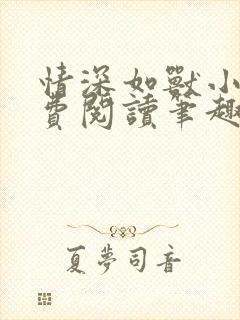 情深如獸小
費閱讀筆趣
夏夢司音